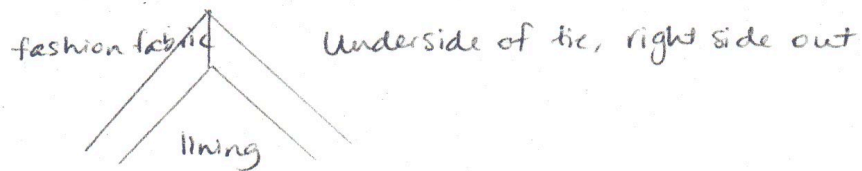 fashion fabric
Underside of tie, right side out
lining